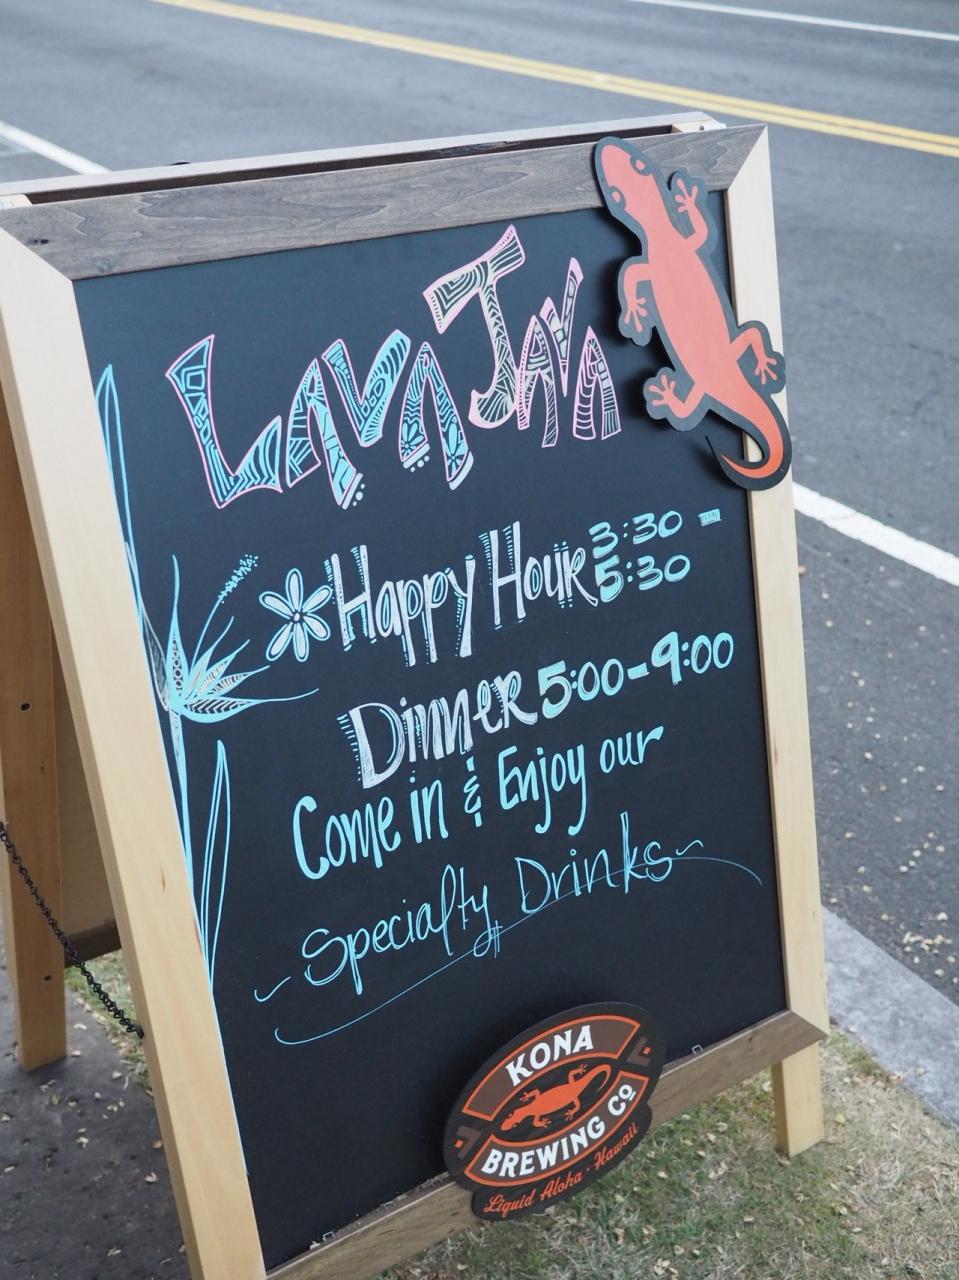 LAVA JAVA
Happy Hour 3:30 -
5:30
Dinner 5:00-9:00
Come in & Enjoy our
~Specialty Drinks~
KONA
BREWING Co
Liquid Aloha · Hawaii